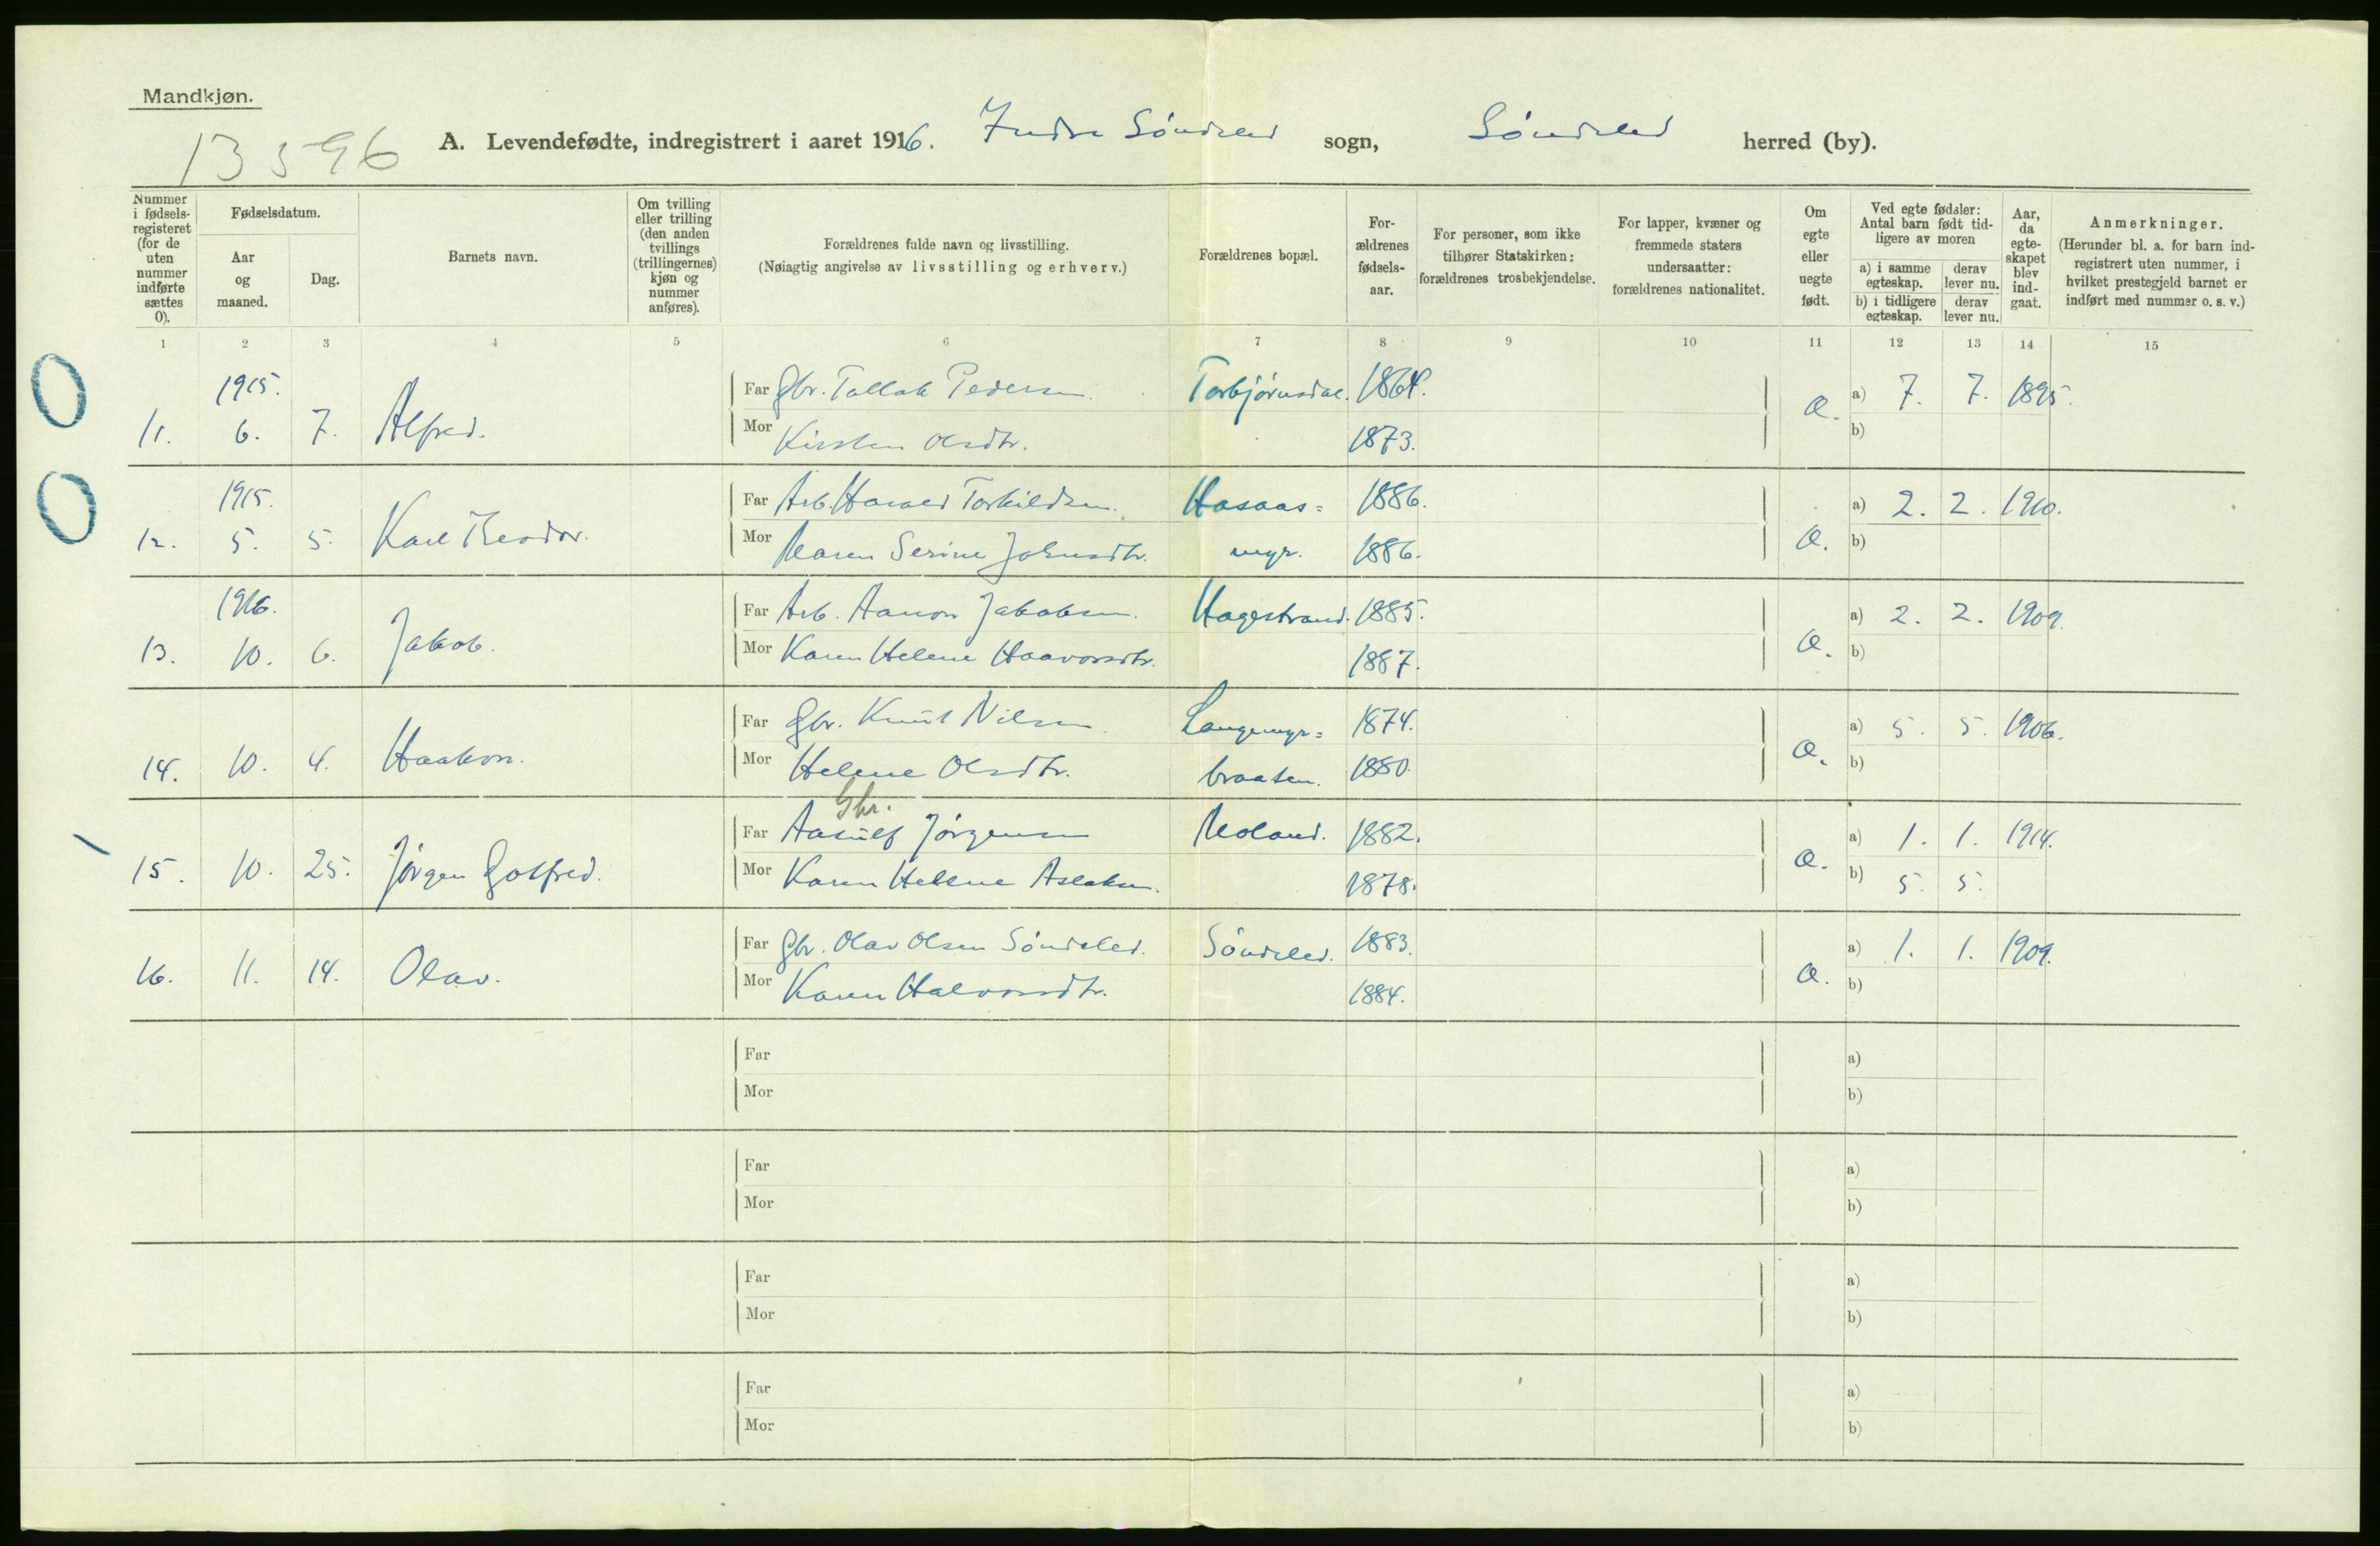 Mandkjøn.
13596
A. Levendefødte, indregistrert i aaret 1916. Indre Søndeled sogn, Søndeled herred (by).
Nummer i fødsels-registeret (for de uten nummer indførte sættes 0).
Fødselsdatum.
Aar og maaned.
Dag.
Barnets navn.
Om tvilling eller trilling (den anden tvillings (trillingernes) kjøn og nummer anføres).
Forældrenes fulde navn og livsstilling.
(Nøiagtig angivelse av livsstilling og erhverv.)
Forældrenes bopæl.
For-ældrenes fødsels-aar.
For personer, som ikke tilhører Statskirken: forældrenes trosbekjendelse.
For lapper, kvæner og fremmede staters undersaatter: forældrenes nationalitet.
Om egte eller uegte født.
Ved egte fødsler: Antal barn født tid-ligere av moren
a) i samme egteskap.
derav lever nu.
b) i tidligere egteskap.
derav lever nu.
Aar, da egte-skapet blev ind-gaat.
Anmerkninger.
(Herunder bl. a. for barn ind-registrert uten nummer, i hvilket prestegjeld barnet er indført med nummer o. s. v.)
1 2 3 4 5 6 7 8 9 10 11 12 13 14 15
0
1915.
11. 6. 7. Alfred.
Far Gbr. Tallak Pedersen. Torbjørnsdal. 1864.
Mor Kirsten Olsdtr. 1873.
a) 7. 7. 1895.
b)
0
1915.
12. 5. 5. Karl Teodor.
Far Arb. Harald Torkildsen. Hasaas= 1886.
Mor Maren Serine Johnsdtr. myr. 1886.
a) 2. 2. 1910.
b)
1916.
13. 10. 6. Jakob.
Far Arb. Aanon Jakobsen. Hagestrand. 1885.
Mor Karen Helene Haavorsdtr. 1887.
a) 2. 2. 1909.
b)
14. 10. 4. Haakon.
Far Gbr. Knut Nilsen. Langemyr= 1874.
Mor Helene Olsdtr. braaten. 1880.
a) 5. 5. 1906.
b)
Gbr.
15. 10. 25. Jørgen Gotfred.
Far Aasulf Jørgensen Moland. 1882.
Mor Karen Helene Aslaksen. 1878.
a) 1. 1. 1914.
b) 5. 5.
16. 11. 14. Olav.
Far Gbr. Olav Olsen Søndeled. Søndeled. 1883.
Mor Karen Halvorsdtr. 1884.
a) 1. 1. 1909.
b)
Far a)
Mor b)
Far a)
Mor b)
Far a)
Mor b)
Far a)
Mor b)